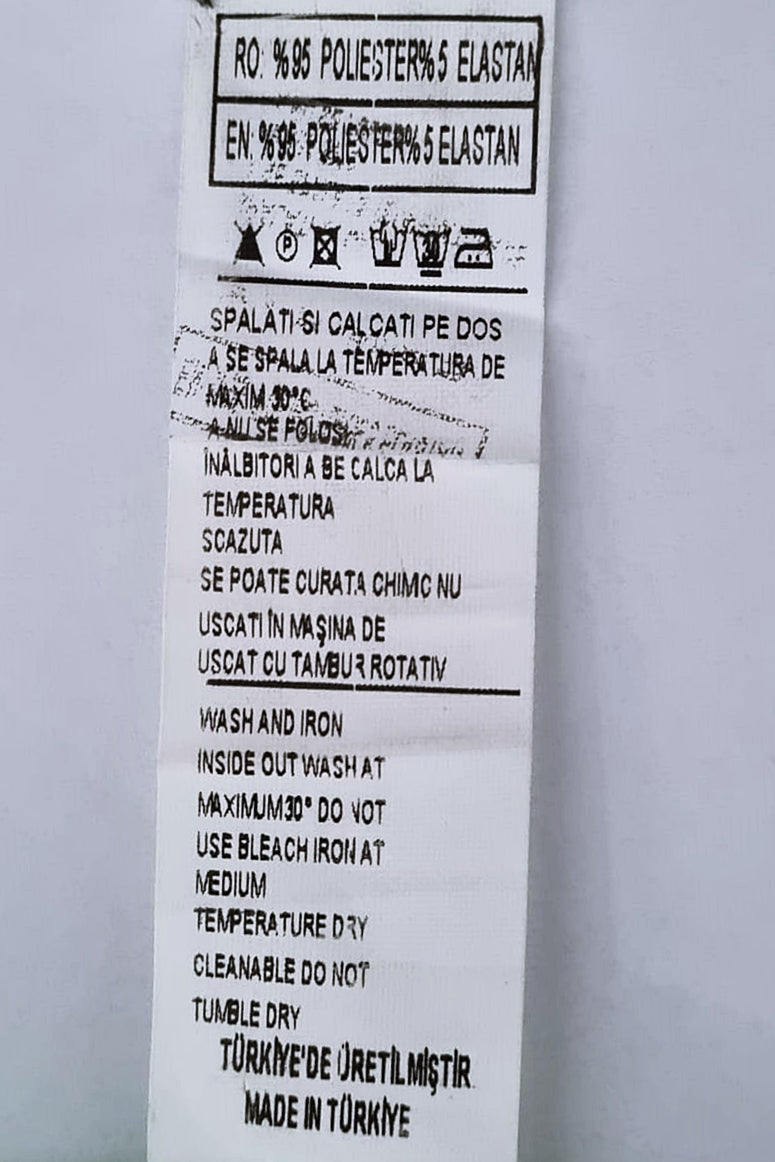 RO: %95 POLIESTER%5 ELASTAN
EN: %95 POLIESTER%5 ELASTAN
P
30
SPALATI SI CALCATI PE DOS
A SE SPALA LA TEMPERATURA DE
MAXIM 30°C
A NU SE FOLOSI
INĂLBITORI A BE CALCA LA
TEMPERATURA
SCAZUTA
SE POATE CURATA CHIMC NU
USCATI ÎN MAŞINA DE
USCAT CU TAMBUR ROTATIV
WASH AND IRON
INSIDE OUT WASH AT
MAXIMUM30° DO NOT
USE BLEACH IRON AT
MEDIUM
TEMPERATURE DRY
CLEANABLE DO NOT
TUMBLE DRY
TÜRKİYE'DE ÜRETİLMİŞTİR
MADE IN TÜRKİYE